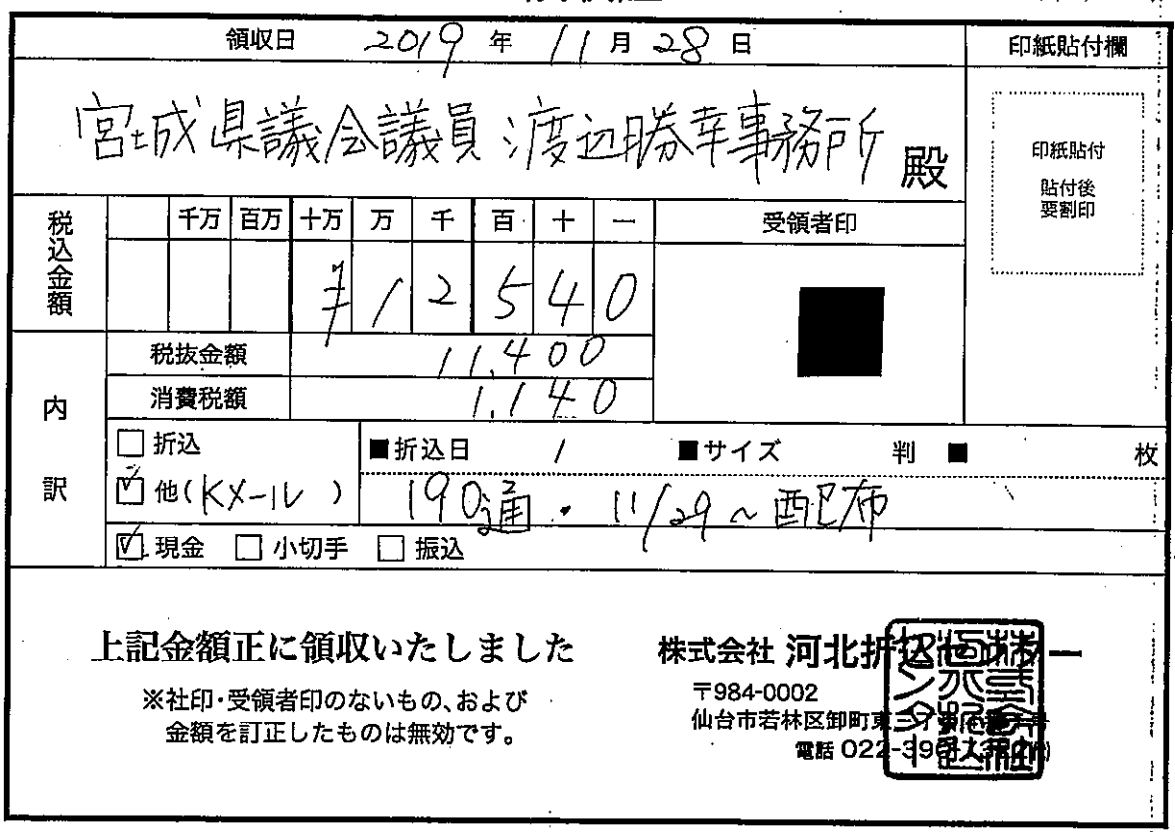 領収日 2019 年 11 月 28 日
印紙貼付欄
宮城県議会議員 渡辺勝幸事務所 殿
印紙貼付
貼付後
要割印
税込金額
千万 百万 十万 万 千 百 十 一
受領者印
¥ 1 2 5 4 0
内訳
税抜金額 11,400
消費税額 1,140
□ 折込 ■折込日 / ■サイズ 判 ■ 枚
☑ 他(Kメール) 190通・11/29～配布
☑ 現金 □ 小切手 □ 振込
上記金額正に領収いたしました
※社印・受領者印のないもの、および
金額を訂正したものは無効です。
株式会社 河北折込センター
〒984-0002
仙台市若林区卸町東
電話 022-390-